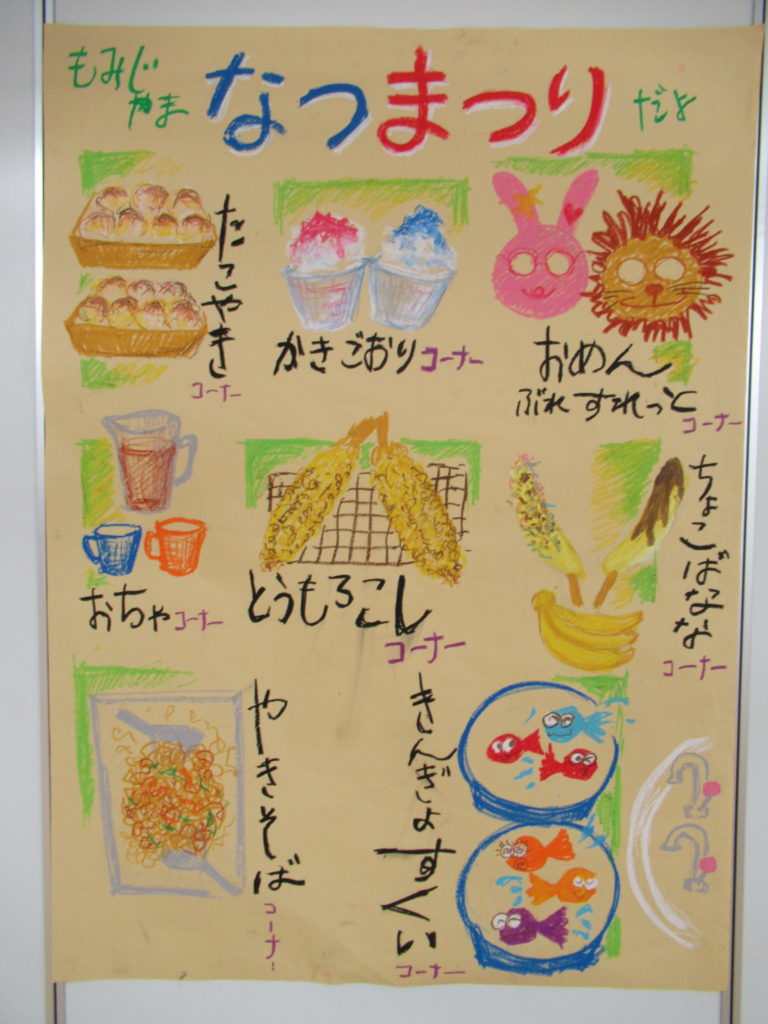 もみじ
やま
なつまつり
だよ
たこやき
コーナー
かきごおり コーナー
おめん
ぶれすれっと
コーナー
おちゃ コーナー
とうもろこし
コーナー
ちょこばなな
コーナー
やきそば
コーナー
きんぎょ
すくい
コーナー